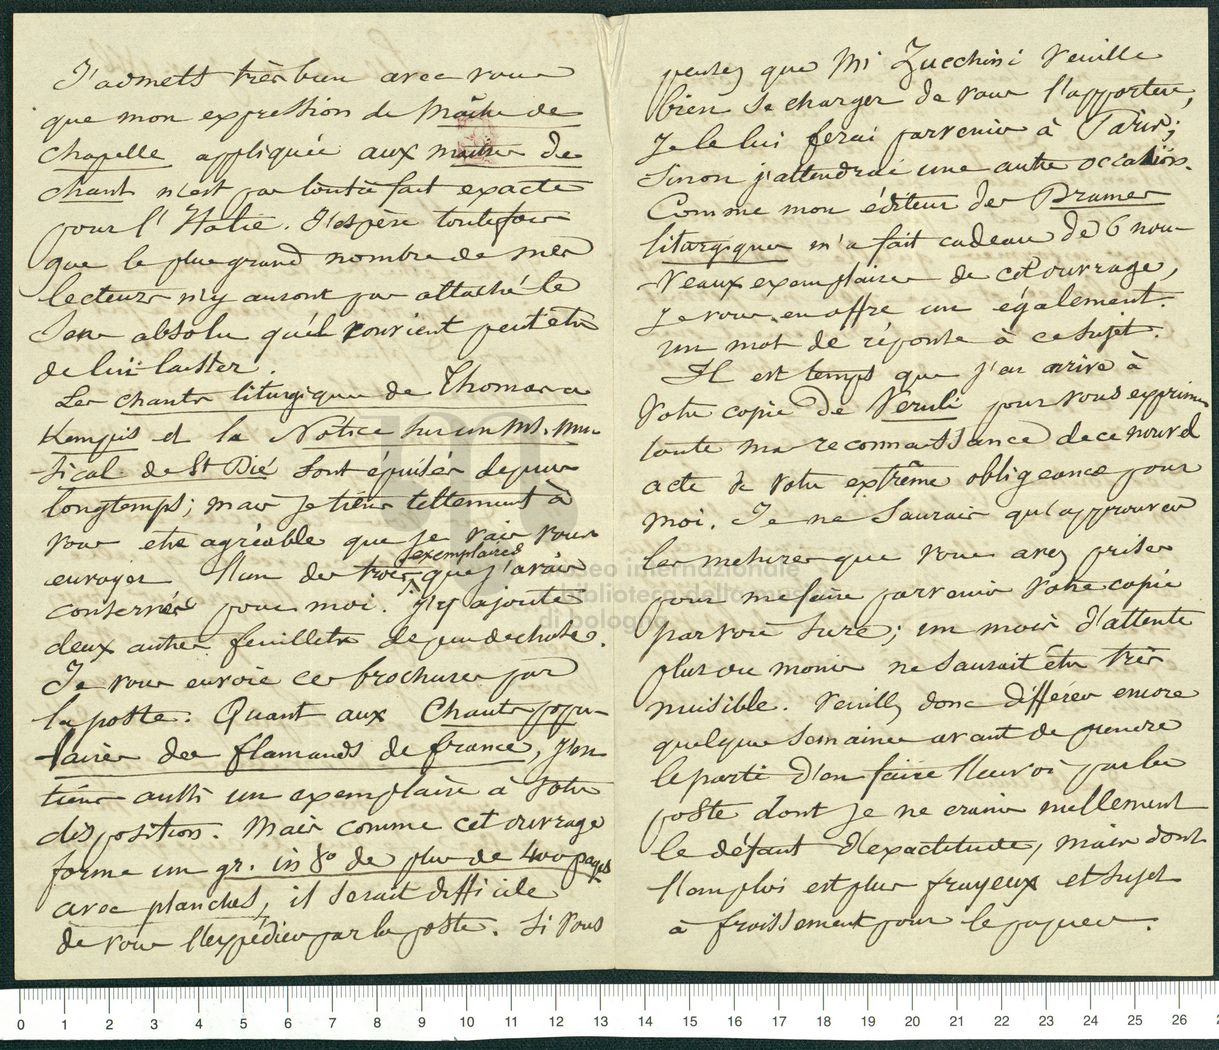 J'admets très bien avec vous
que mon expression de Maître de
chapelle appliquée aux maîtres de
chant n'est pas tout à fait exacte
pour l'Italie. J'espère toutefois
que le plus grand nombre de mes
lecteurs n'y auront pas attaché le
sens absolu qu'il convient peut être
de lui laisser.
Les chants liturgiques de Thomas a
Kempis et la Notice sur un MS. Mu-
sical de St Dié sont épuisés depuis
longtemps; mais je tiens tellement à
vous être agréable que je vais vous
envoyer l'un des trois exemplaires que j'avais
conservés pour moi. J'y ajoute
deux autres feuillets de peu de chose.
Je vous envoie ces brochures par
la poste. Quant aux Chants popu-
laires des flamands de france, j'en
tiens aussi un exemplaire à votre
disposition. Mais comme cet ouvrage
forme un gr. in 8º de plus de 400 pages
avec planches, il serait difficile
de vous l'expédier par la poste. Si vous
pensez que Mr Zucchini veuille
bien se charger de vous l'apporter,
Je le lui ferai parvenir à Paris;
Sinon j'attendrai une autre occasion.
Comme mon éditeur des Drames
liturgiques m'a fait cadeau de 6 nou-
veaux exemplaires de cet ouvrage,
je vous en offre un également.
un mot de réponse à ce sujet.
Il est temps que j'en arrive à
votre copie de Veruli pour vous exprimer
toute ma reconnaissance de ce nouvel
acte de votre extrême obligeance pour
moi. Je ne saurais qu'approuver
les mesures que vous avez prises
pour me faire parvenir votre copie
par voie sure; un mois d'attente
plus ou moins ne saurait être très
nuisible. Veuillez donc différer encore
quelques semaines avant de prendre
le parti d'en faire l'envoi par la
poste dont je ne crains nullement
le défaut d'exactitude, mais dont
l'emploi est plus frayeux et sujet
à froissement pour le papier.
museo internazionale
e biblioteca della musica
di bologna
0 1 2 3 4 5 6 7 8 9 10 11 12 13 14 15 16 17 18 19 20 21 22 23 24 25 26